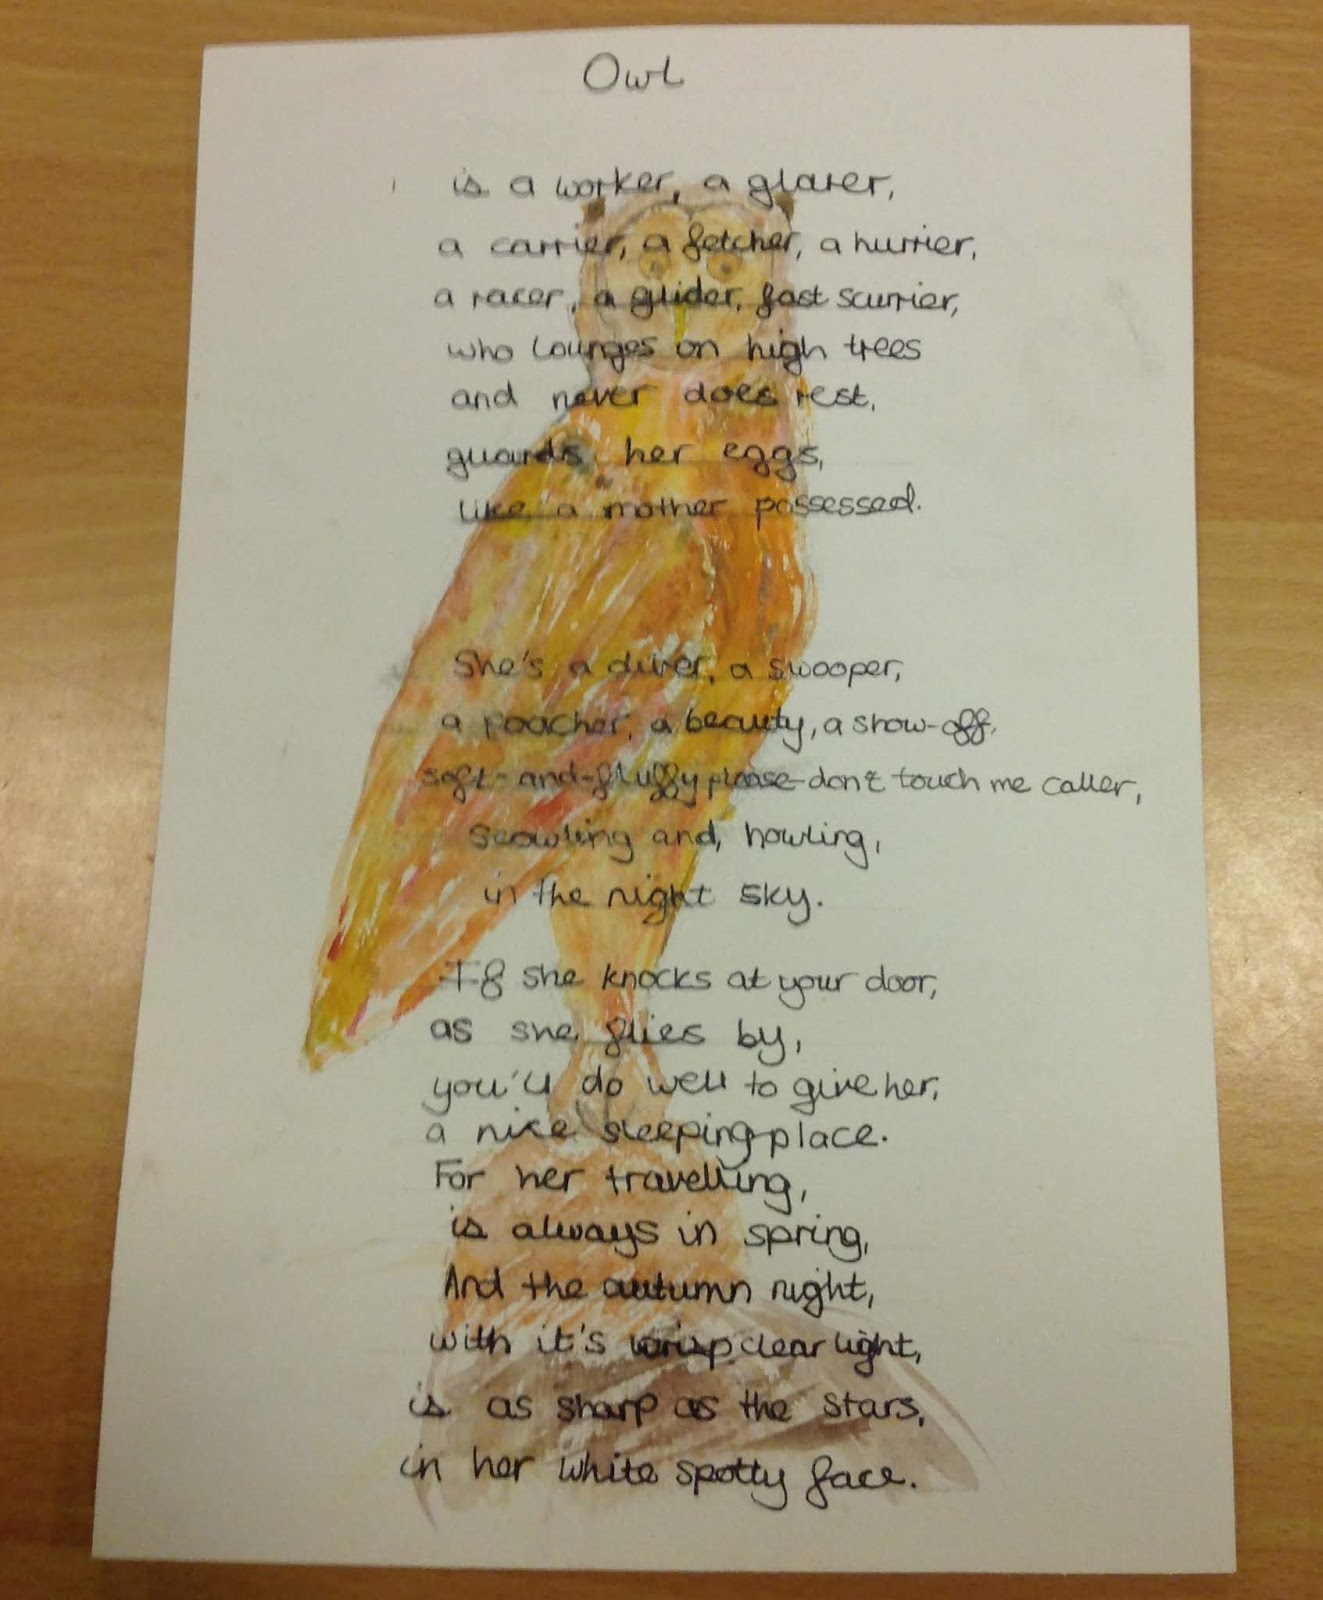 Owl
is a worker, a glarer,
a carrier, a fetcher, a hurrier,
a racer, a glider, fast scurrier,
who lounges on high trees
and never does rest,
guards her eggs,
like a mother possessed.
She's a diver, a swooper,
a poacher, a beauty, a show-off,
soft-and-fluffy please-don't touch me caller,
scowling and, howling,
in the night sky.
If she knocks at your door,
as she flies by,
you'll do well to give her,
a nice sleeping place.
For her travelling,
is always in spring,
And the autumn night,
with it's crisp clear light,
is as sharp as the stars,
in her white spotty face.